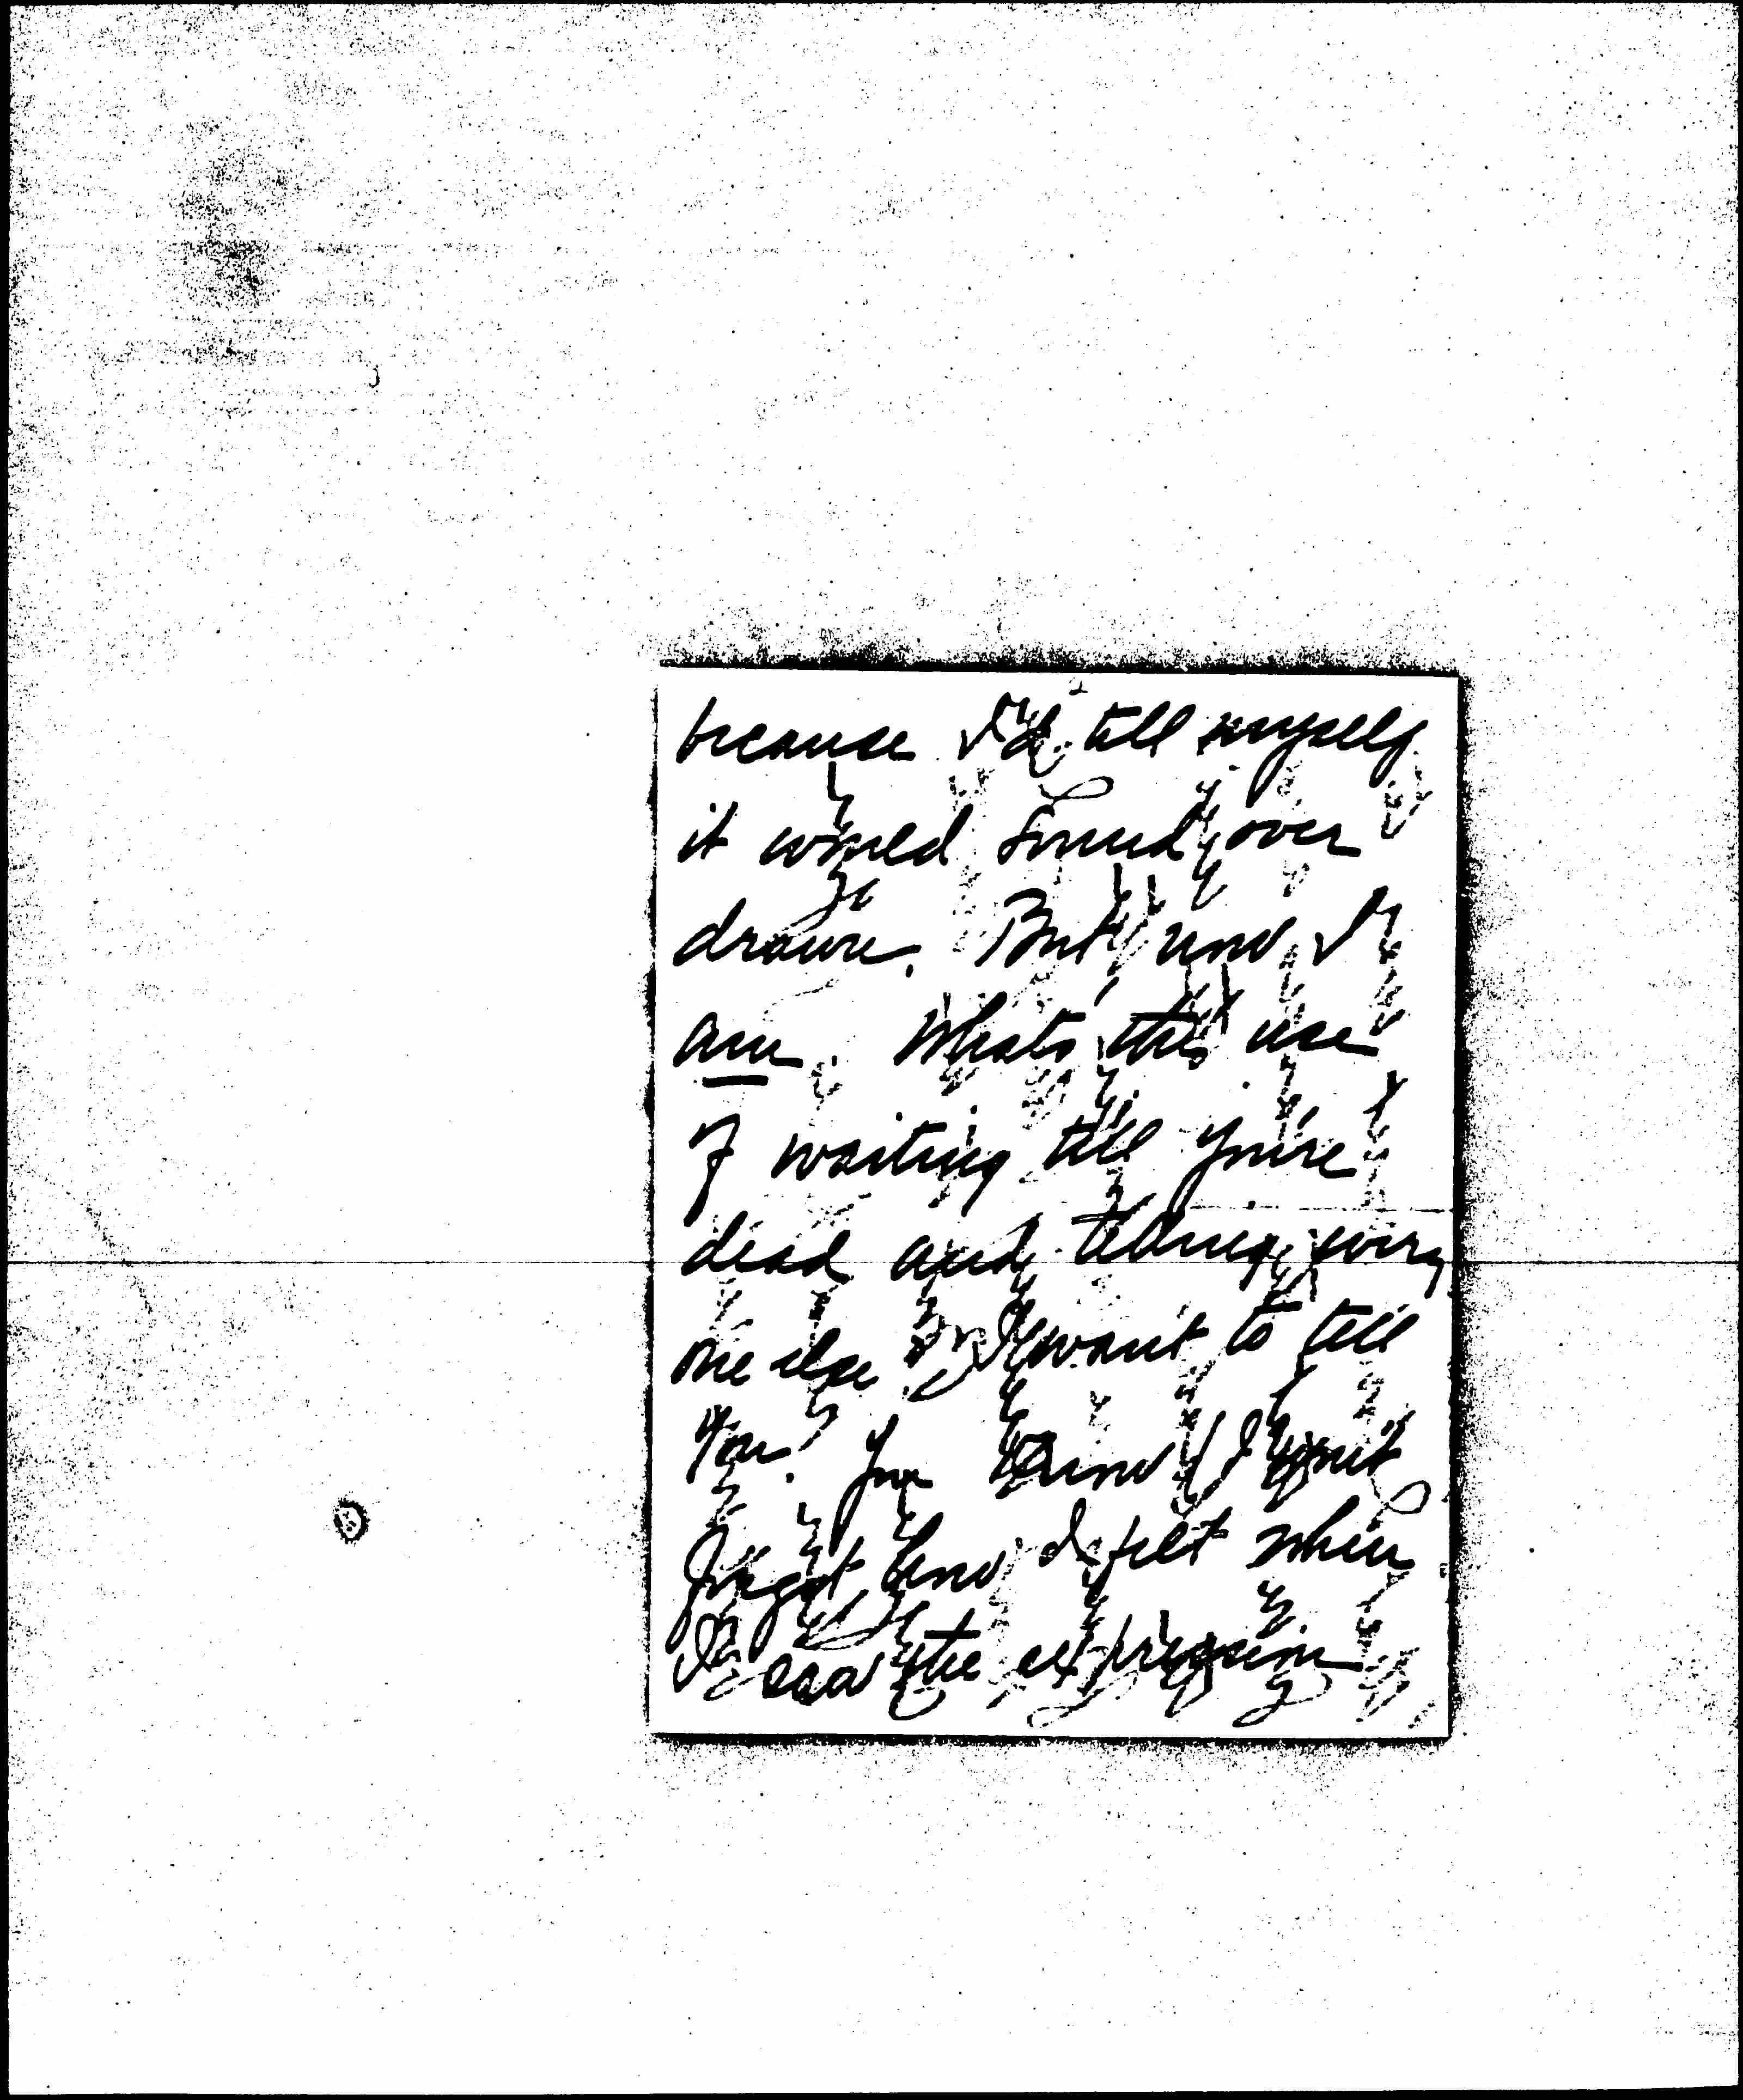 because I'd tell myself
it would sound over
drawn. But now I
am. What's the use
of waiting till you're
dead and telling every
one else? I want to tell
you. You know I won't
forget how I felt when
I saw the expression